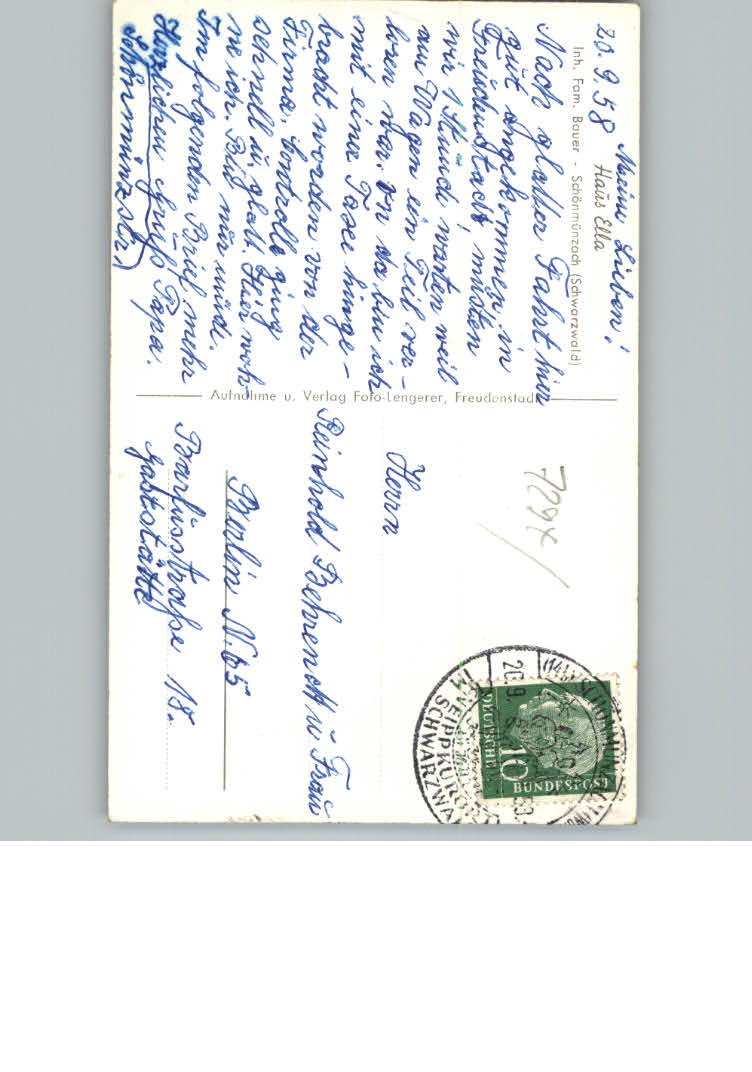 20.9.58
Haus Ella
Inh. Fam. Bauer - Schönmünzach (Schwarzwald)
Meine Lieben!
Nach glatter Fahrt hier
gut angekommen, in
Freudenstadt mußten
wir 1 Stunde warten weil
am Wagen ein Teil ver-
loren war. Von da bin ich
mit eine Taxe hinge-
bracht worden von der
Firma. Controlle ging
schnell u. glatt. Hier woh-
ne ich. Bin nur müde.
Im folgenden Brief mehr
Herzlichen Gruß Papa.
Aufnahme u. Verlag Foto-Lengerer, Freudenstadt
7294
Herrn
Reinhold Behrendt u Frau
Berlin N.65
Barfusstraße 18.
Gaststätte
20.9.
KNEIPPKURORT
IM SCHWARZWA
10
DEUTSCHE
BUNDESPOST